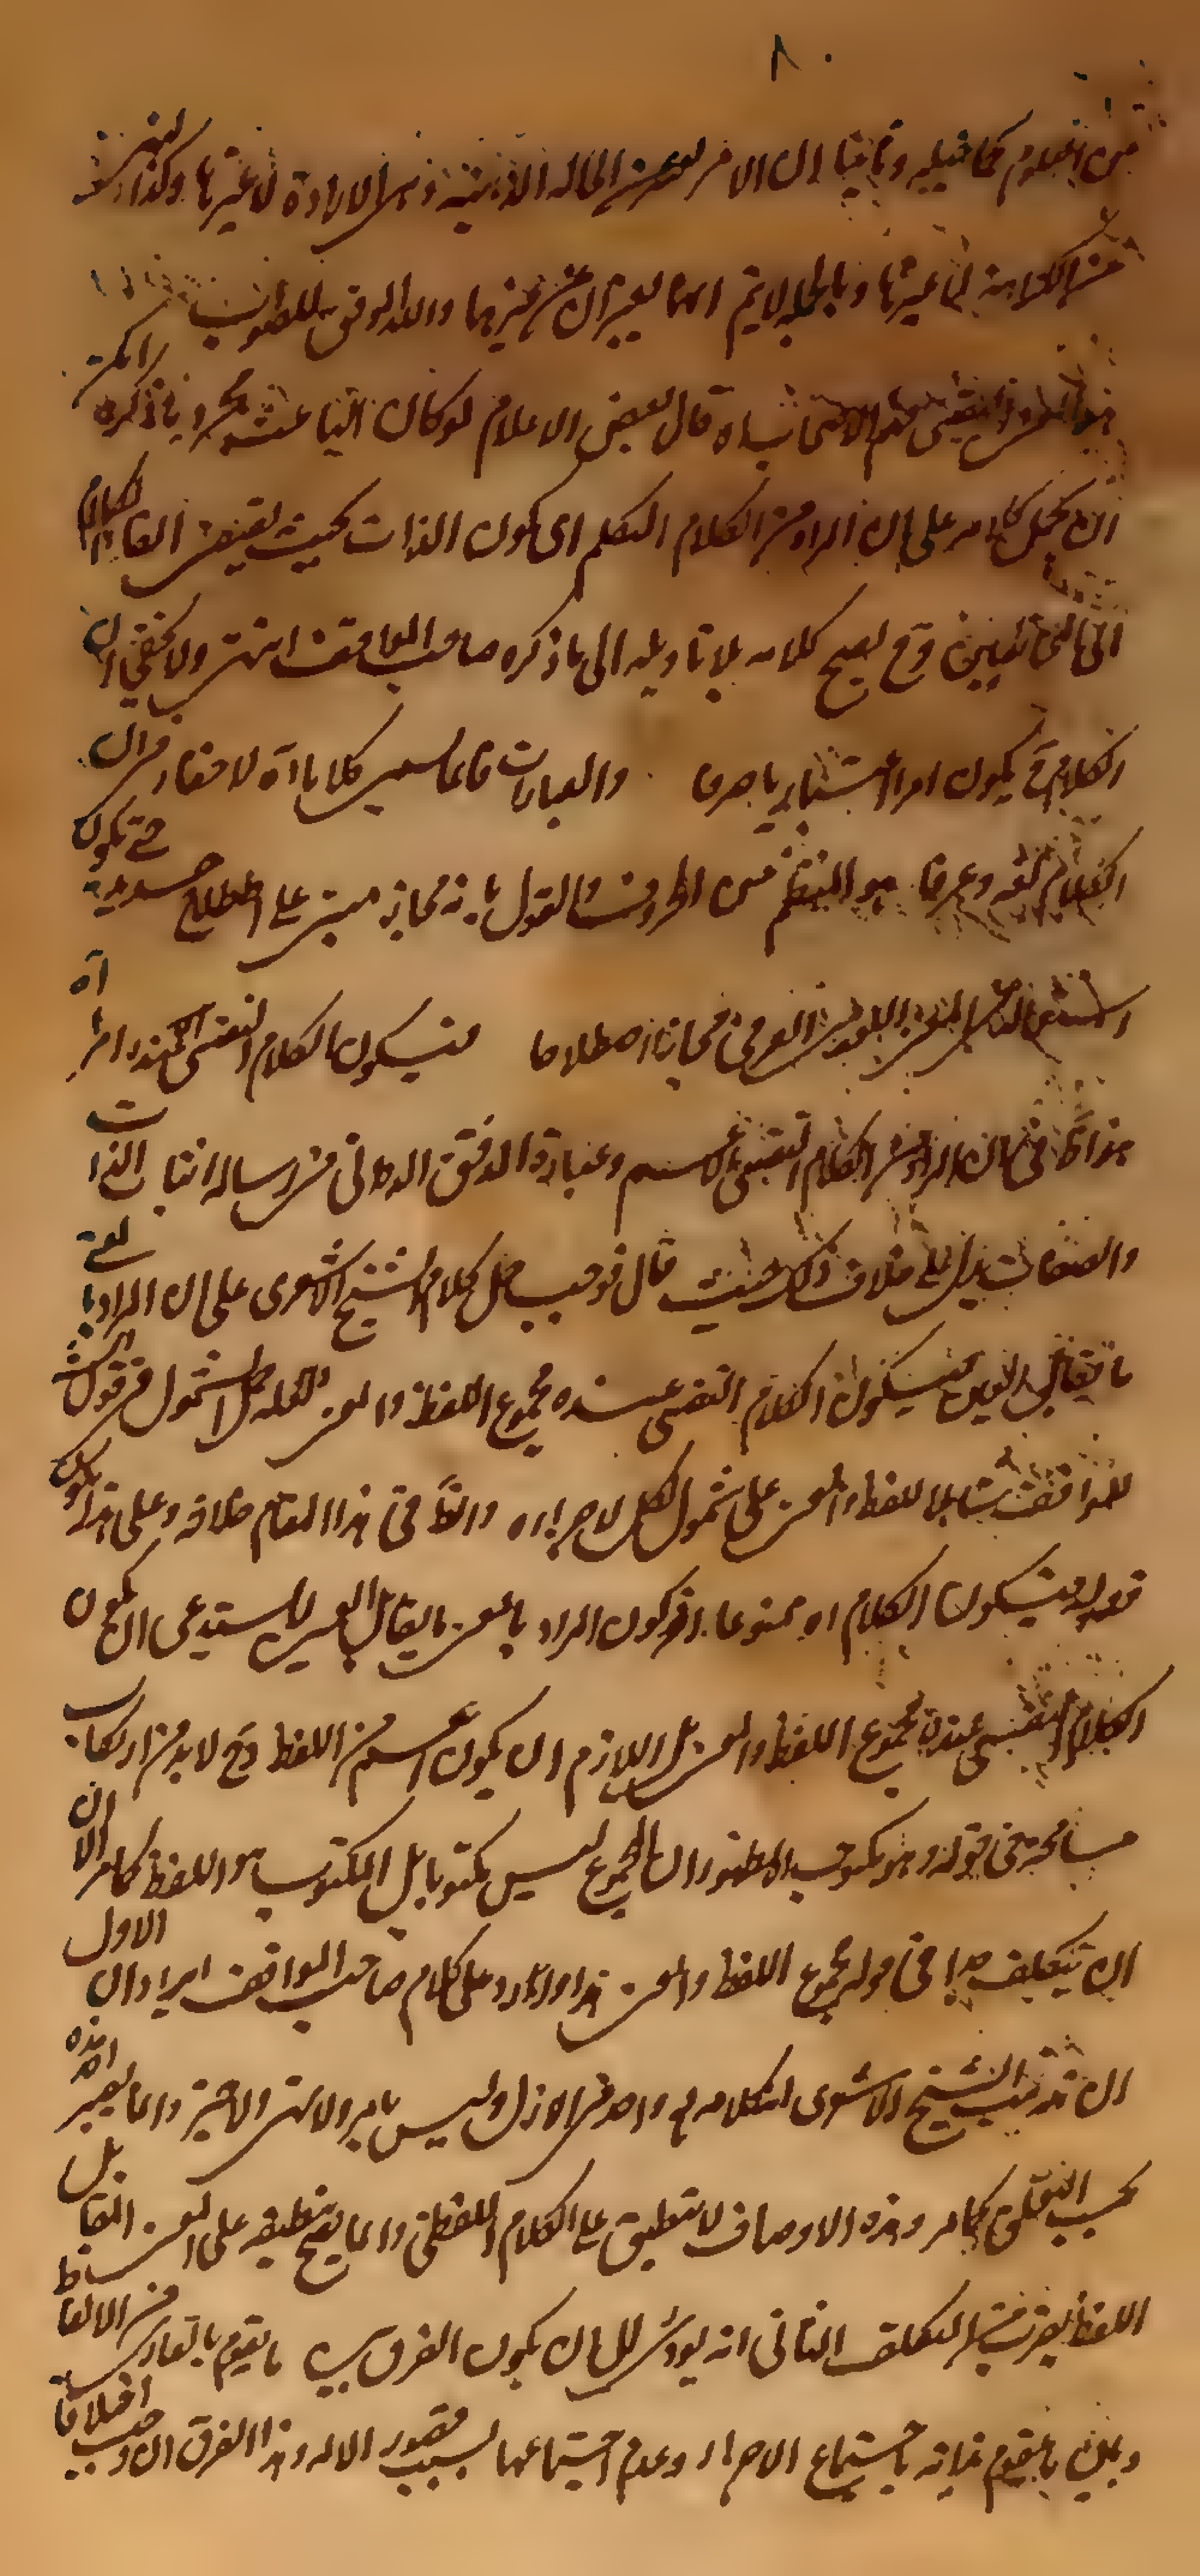 ٨٠
من العلوم كما قيل وثانيا ان الامر الحالة الذهنية وهى الارادة لا غيرها وكذا النهى
عن الكراهة لا غيرها وبالجملة لا يتم انما يعبر ان عن غيرهما والله الموفق للصواب
قال بعض الاعلام لو كان الباعث مجرد ما ذكره
ان يحمل كلامه على ان المراد من الكلام التكلم اى كون الذات بحيث يقتضى القاء الكلام
الى المخاطبين وح يصح كلامه بلا تاويله الى ما ذكره صاحب المواقف انتهى ولا يخفى ان
الكلام ح يكون امرا اعتباريا صرفا والعبارات فانما سمى كلاما اه لا خفاء فى ان
الكلام لغة وعرفا هو المنتظم من الحروف والقول بانه مجاز مبنى على اصطلاح جديد حتى يكون
استعمال اللغوى العرفى مجازا اصطلاحا فيكون الكلام النفسى عنده امرا اه
هذا ظ فى ان المراد من الكلام النفسى الاعم وعبارة المدقق الدوانى فى رسالة اثبات الذات
والصفات يدل على خلاف ذلك حيث قال فوجب حمل كلام الشيخ الاشعرى على ان المراد بالمعنى
ما يقابل العين فيكون الكلام النفسى عنده مجموع اللفظ والمعنى ولعله حمل الشمول فى قول
المواقف شاملا للفظ والمعنى على شمول الكل لاجزاءه والظ فى هذا المقام خلافه وعلى هذا يكون
قوله فيكون الكلام اه ممنوعا اذ كون المراد بالمعنى ما يقابل العين لا يستدعى ان يكون
الكلام النفسى عنده مجموع اللفظ والمعنى بل اللازم ان يكون اعم من اللفظ وح لا بد من ارتكاب
مسامحة فى قوله وهو مكتوب اه لظهور ان المجموع ليس مكتوبا بل المكتوب هو اللفظ كما مر الا ان
ان يتكلف هذا فى قوله مجموع اللفظ والمعنى هذا واورد على كلام صاحب المواقف ايرادان الاول
ان مذهب الشيخ الاشعرى ان كلامه تع واحد فى الازل وليس بامر ولا نهى ولا خبر وانما يصير احد هذه
بحسب التعلق كما مر وهذه الاوصاف لا تنطبق على الكلام اللفظى وانما يصح تطبيقه على المعنى المقابل
اللفظ بضرب من التكلف الثانى انه يؤدى الى ان يكون الفرق بين ما يقوم بالقارى من الالفاظ
وبين ما يقوم بذاته باجتماع الاجزاء وعدم اجتماعها بسبب قصور الالة وهذا الفرق ان اوجب اختلافا